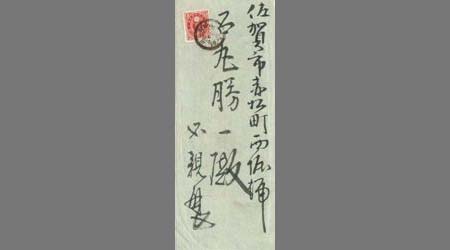 佐賀市赤松町西堀端
石丸勝一殿
必親展